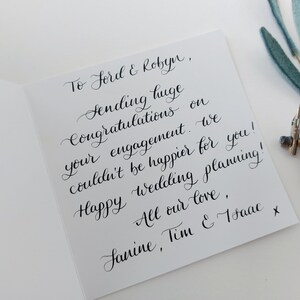 To Ford & Robyn,
Sending huge
Congratulations on
your engagement. We
couldn't be happier for you!
Happy Wedding planning!
All our love,
Janine, Tim & Isaac x